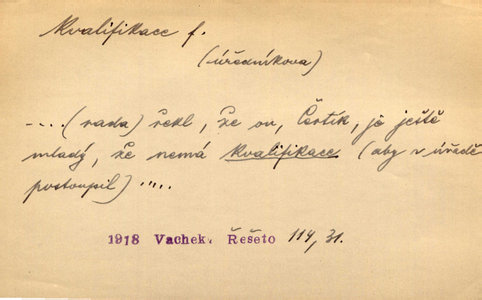 Kvalifikace f.
(úředníkova)
....(rada) řekl, že on, Čertík, je ještě
mladý, že nemá kvalifikace (aby v úřadě
postoupil) .....
1918 Vachek. Řešeto 114, 31.